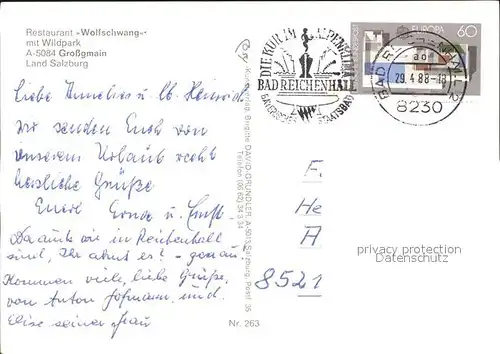 Restaurant »Wolfschwang«
mit Wildpark
A-5084 Großgmain
Land Salzburg
DIE KUR IM ALPENKLIMA
BAD REICHENHALL
BAYERISCHES STAATSBAD
EUROPA 60
BAD REICHENHALL 2
ab
29.4.88-18
8230
Liebe Annelies u. lb. Heinrich
wir senden Euch von
unserem Urlaub recht
herzliche Grüße
Euere Erna u. Ernst
Da auch wir in Reichenhall
sind, Ihr ahnt es? - genau!
Kommen viele, liebe Grüße,
von Anton Hofmann und
Elise seiner Frau
Kunstverlag Brigitte DAVID-GRÜNDLER, A-5013 Salzburg, Postf. 36
Telefon (0 62) 34 3 34
Nr. 263
F.
He
A
8521
privacy protection
Datenschutz